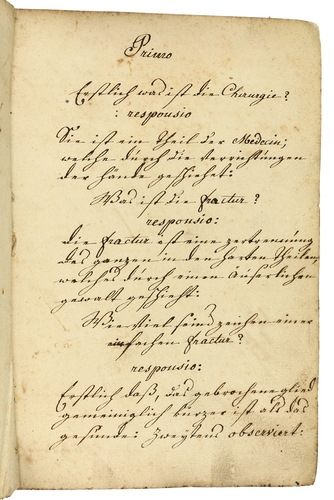 Primo
Erstlich was ist die Chirurgie?
: responsio
Sie ist ein Theil der Medecin;
welche durch die Verrichtungen
der Hände geschiehet:
Was ist die fractur?
responsio:
die fractur ist eine zertrennung
des ganzen in den harten Theilen,
welches durch einen äuserlichen
gewalt geschieht:
Wie viel seind zeichen einer
einfachen fractur?
responsio:
Erstlich daß, das gebrochene glied
gemeiniglich kürzer ist als das
gesunde: zweytens observiert: